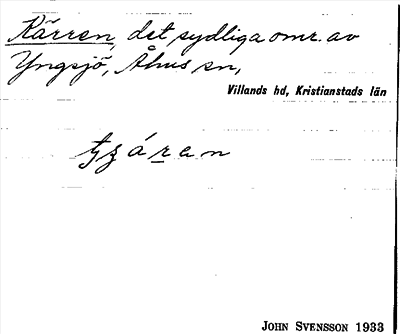 Kärren, det sydliga omr. av
Yngsjö, Åhus sn,
Villands hd, Kristianstads län
John Svensson 1933